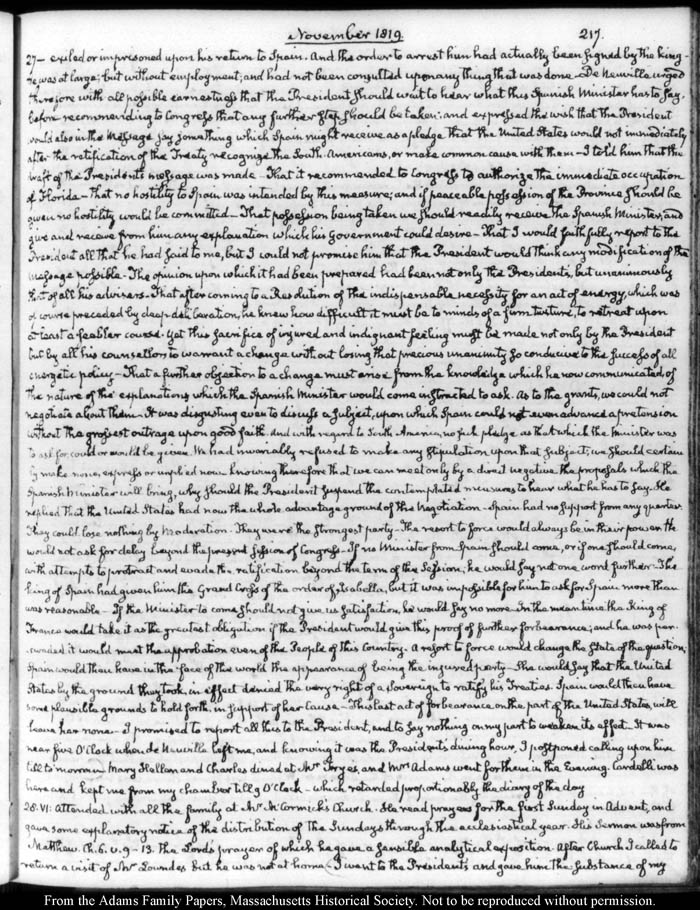 November 1819. 217.
27— exiled or imprisoned upon his return to Spain. And the order to arrest him had actually been signed by the king—
He was at large; but without employment; and had not been consulted upon any thing that was done— De Neuville urged
therefore with all possible earnestness that the President should wait to hear what this Spanish Minister has to say,
before recommending to Congress that any further step should be taken: and expressed the wish that the President
would also in the Message say something which Spain might receive as a pledge that the United States would not immediately
after the ratification of the Treaty recognize the South-Americans, or make common cause with them— I told him that the
draft of the President's message was made— That it recommended to Congress to authorize the immediate occupation
of Florida— That no hostility to Spain was intended by this measure; and if peaceable possession of the Province should be
given no hostility would be committed— That possession being taken we should readily receive the Spanish Minister, and
give and receive from him any explanation which his Government could desire— That I would faithfully report to the
President all that he had said to me, but I could not promise him that the President would think any modification of the
message possible— The opinion upon which it had been prepared had been not only the President's, but unanimously
that of all his advisers. That after coming to a Resolution of the indispensable necessity for an act of energy, which was
of course preceded by deep deliberation, he knew how difficult it must be to minds of a firm texture, to retreat upon
at least a feebler course. Yet this sacrifice of injured and indignant feeling must be made not only by the President
but by all his counsellors to warrant a change without losing that precious unanimity so conducive to the success of all
energetic policy— That a further objection to a change must arise from the knowledge which he now communicated, of
the nature of the explanations which the Spanish Minister would come instructed to ask. As to the grants, we could not
negotiate about them— It was disgusting even to discuss a subject, upon which Spain could not even advance a pretension
without the grossest outrage upon good faith. And with regard to South America, no such pledge as that which the Minister was
to ask for, could or would be given. We had invariably refused to make any stipulation upon that subject; we should certain
ly make none, express or implied now. knowing therefore that we can meet only by a direct negative the proposals which the
Spanish Minister will bring, why should the President suspend the contemplated measures to hear what he has to say. He
replied that the United States had now the whole advantage ground of the Negotiation— Spain had no support from any quarter.
They could lose nothing by Moderation. They were the strongest party— The resort to force would always be in their power. He
would not ask for delay beyond the present Session of Congress— If no Minister from Spain should come, or if one should come,
with attempts to protract and evade the ratification beyond the term of the Session, he would say not one word further— The
king of Spain had given him the Grand Cross of the order of Isabella, but it was impossible for him to ask for Spain more than
was reasonable— If the Minister to come should not give us satisfaction, he would say no more. In the mean time the King of
France would take it as the greatest obligation if the President would give this proof of further forbearance; and he was per-
suaded it would meet the approbation even of the People of this Country. A resort to force would change the state of the question.
Spain would then have in the face of the world the appearance of being the injured party— She would say that the United
States by the ground they took, in effect denied the very right of a Sovereign to ratify his Treaties. Spain would then have
some plausible grounds to hold forth, in support of her cause— This last act of forbearance on the part of the United States will
leave her none— I promised to report all this to the President, and to say nothing on my part to weaken its effect. It was
near five O'Clock when de Neuville left me, and knowing it was the President's dining hour, I postponed calling upon him
till to morrow. Mary Hellen and Charles dined at Mr Frye's, and Mrs Adams went for them in the Evening. Cardelli was
here and kept me from my chamber till 9 O'Clock— which retarded proportionably the diary of the day
28. VI: Attended with all the family at Mr McCormick's Church. He read prayers for the first Sunday in Advent, and
gave some explanatory notice of the distribution of the Sundays through the ecclesiastical year. His Sermon was from
Matthew. Ch. 6. v. 9–13. The Lord's prayer of which he gave a sensible analytical exposition. After Church I called to
return a visit of Mr Lowndes but he was not at home— I went to the President's and gave him the substance of my
From the Adams Family Papers, Massachusetts Historical Society. Not to be reproduced without permission.